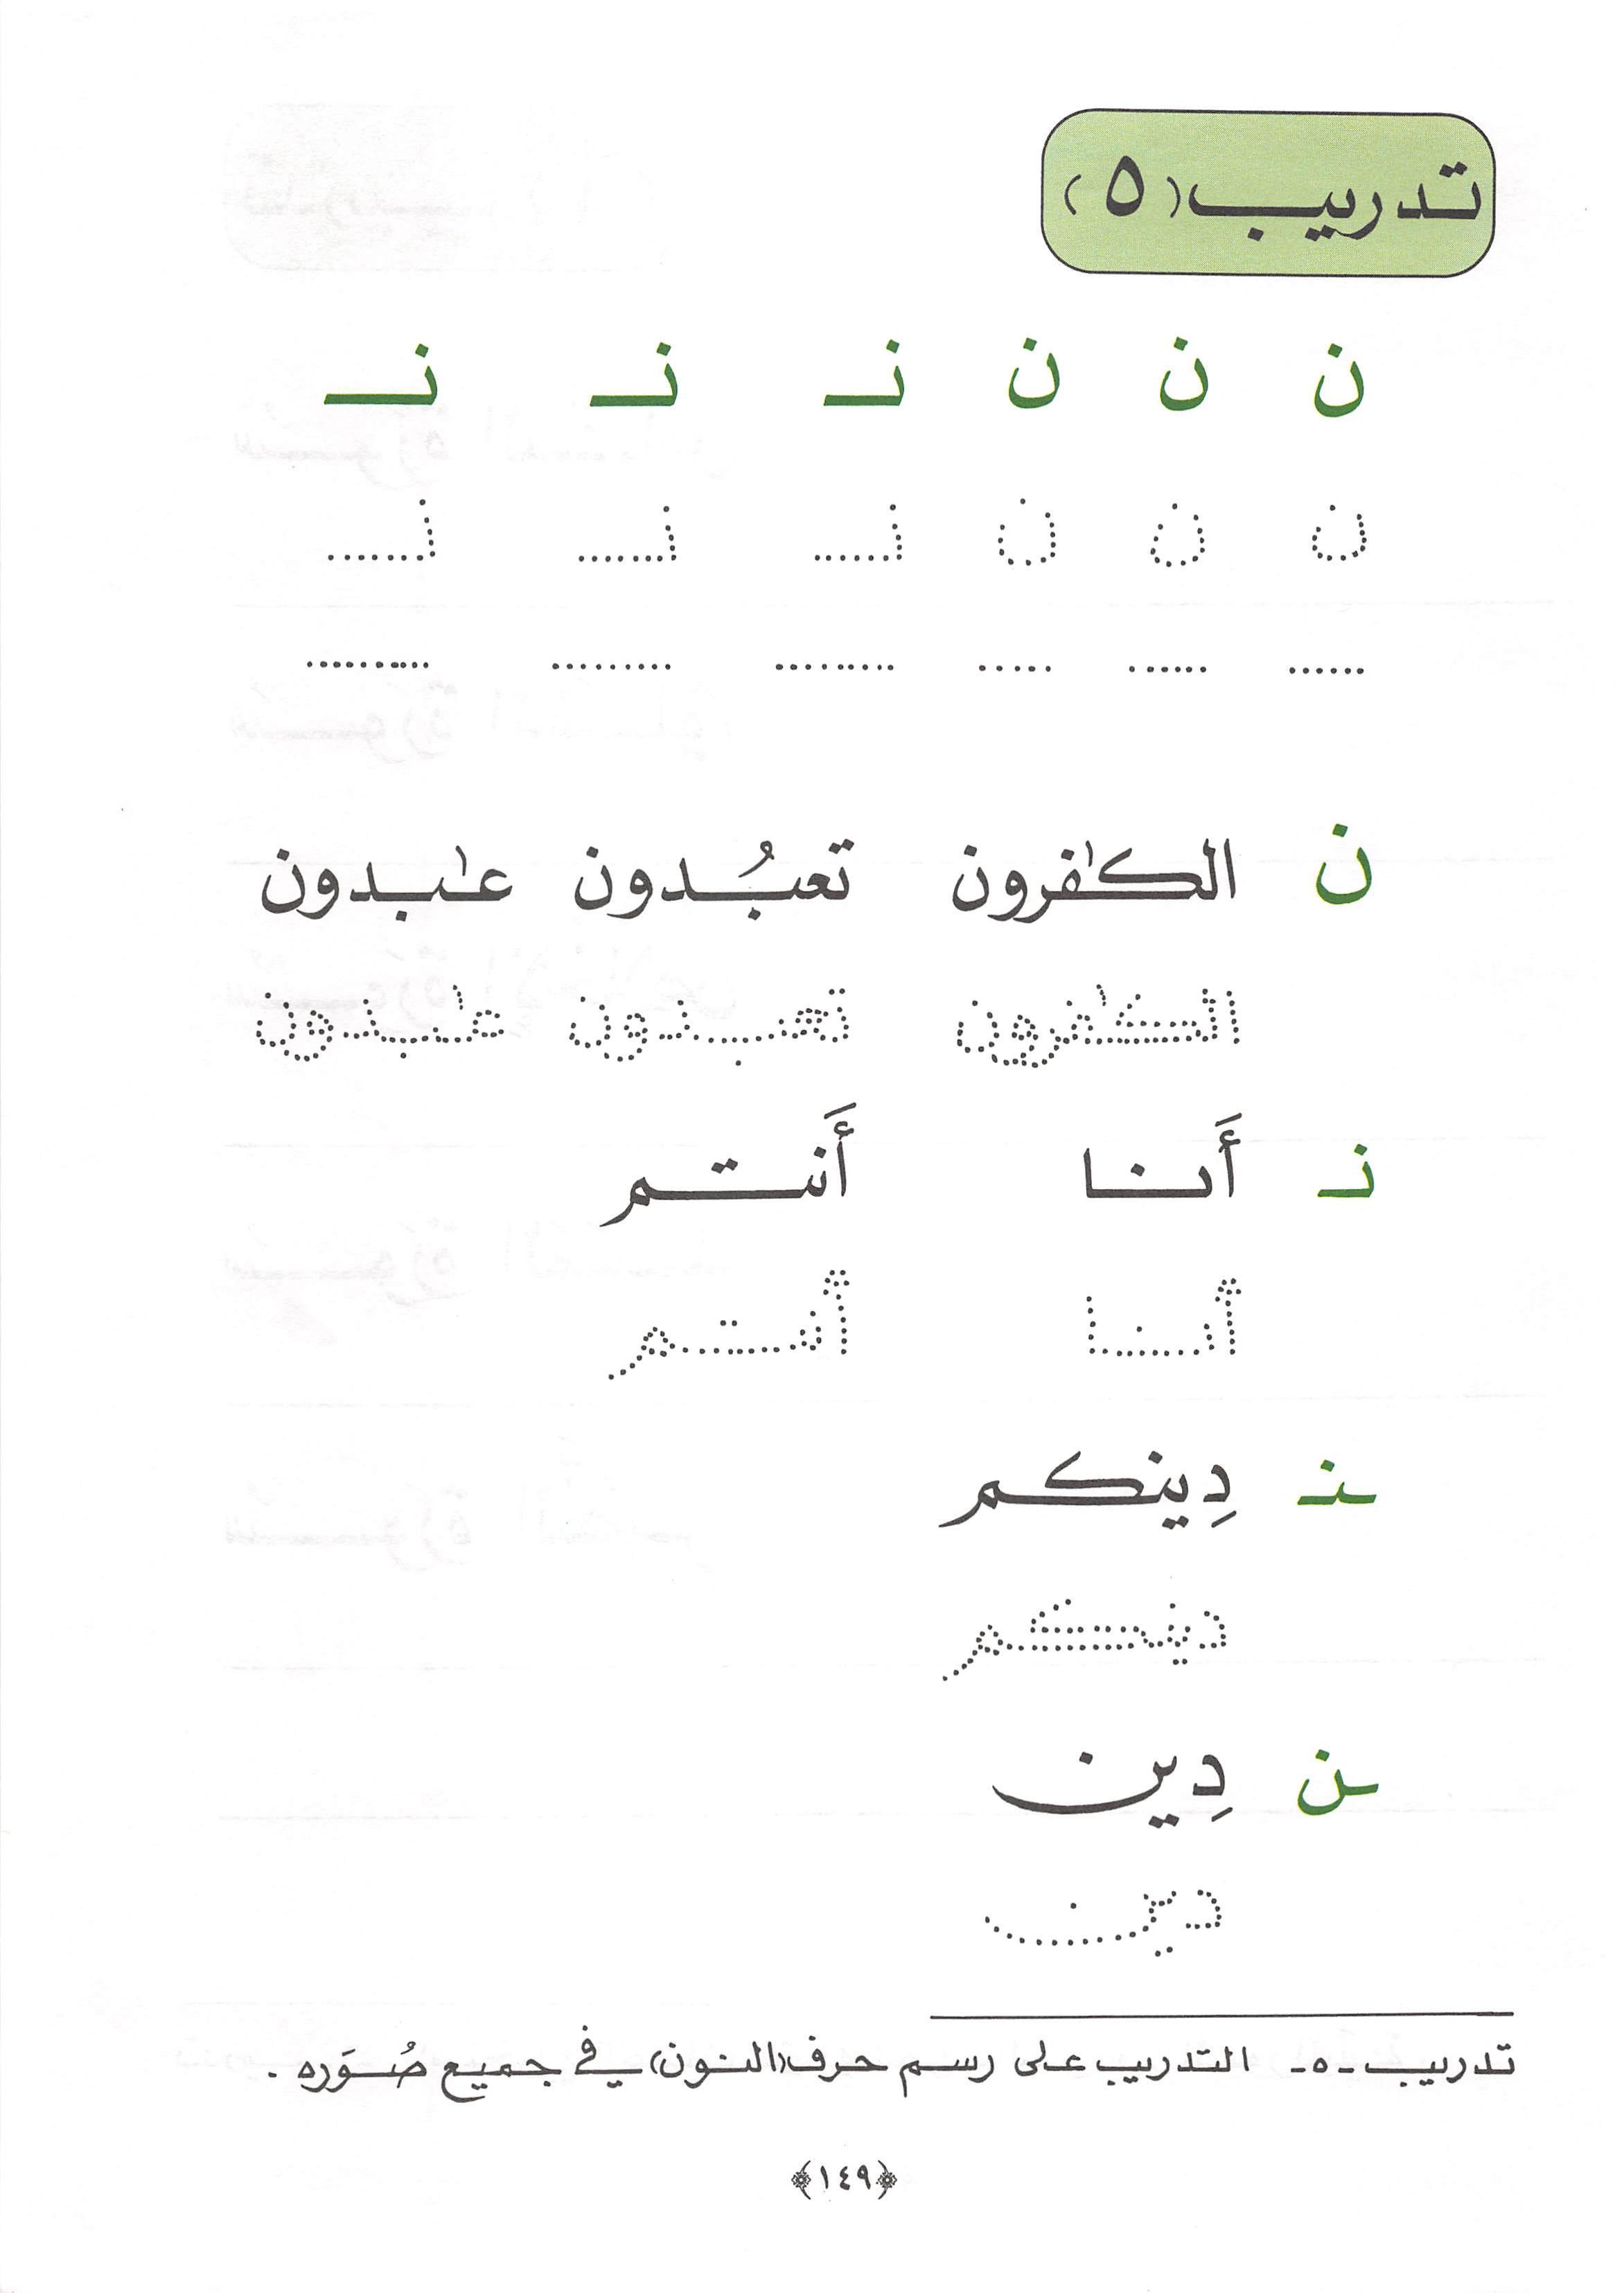 تدريب (٥)
ن ن ن نـ نـ نـ
ن ن ن نـ نـ نـ
ن الكٰفرون تعبُدون عٰبدون
الكٰفرون تعبدون عٰبدون
نـ أَنا أَنتم
أَنا أَنتم
ـنـ دِينكم
دينكم
ـن دِين
دين
تدريب -٥- التدريب على رسم حرف (النون) في جميع صُوَره .
﴿١٤٩﴾